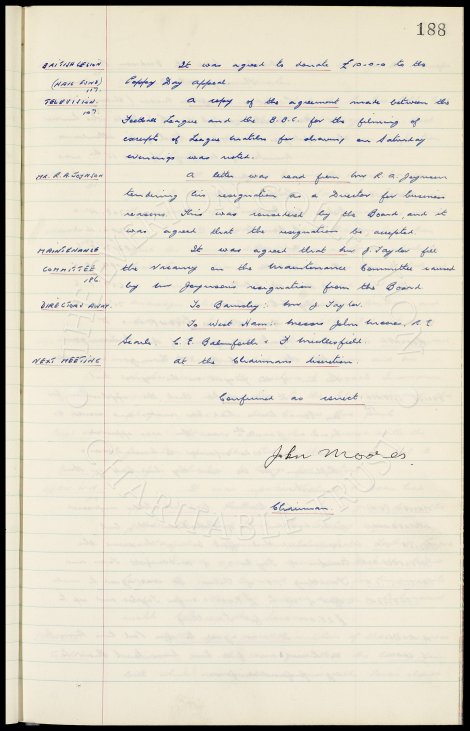 188
BRITISH LEGION It was agreed to donate £10-0-0 to the
(HAIG FUND) Poppy Day appeal.
117.
TELEVISION. A copy of the agreement made between the
107. Football League and the B.B.C. for the filming of
excerpts of League matches for showing on Saturday
evenings was noted.
MR. R. A. JOYNSON A letter was read from Mr R. A. Joynson
tendering his resignation as a Director for business
reasons. This was considered by the Board and it
was agreed that the resignation be accepted.
MAINTENANCE It was agreed that Mr J. Taylor fill
COMMITTEE the vacancy on the Maintenance Committee caused
186. by Mr Joynson's resignation from the Board.
DIRECTORS AWAY. To Barnsley:. Mr J Taylor.
To West Ham:. Messrs John Moores, R. E
Searle C. E. Balmforth & F Micklesfield.
NEXT MEETING At the Chairmans discretion.
Confirmed as correct
John Moores.
Chairman.
CHARITABLE TRUST